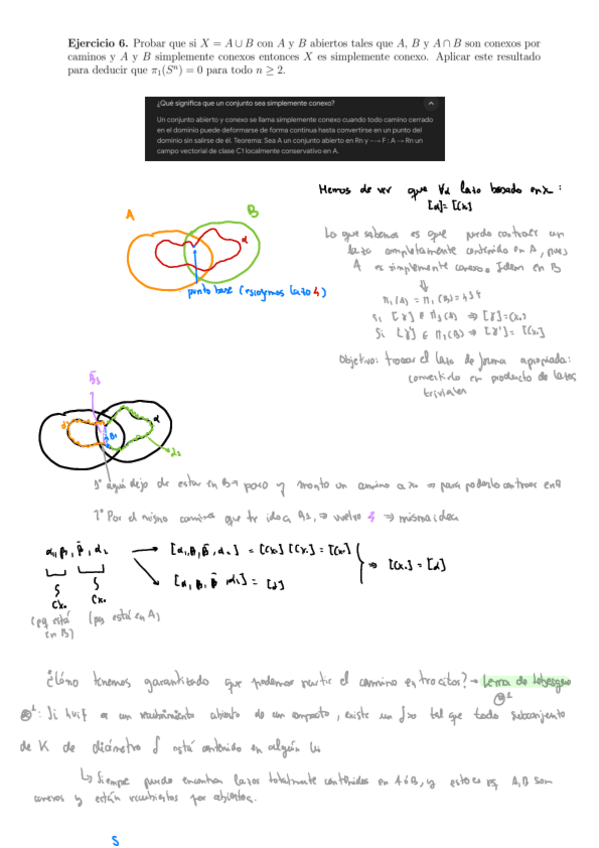 Ejercicio 6. Probar que si X = A ∪ B con A y B abiertos tales que A, B y A ∩ B son conexos por
caminos y A y B simplemente conexos entonces X es simplemente conexo. Aplicar este resultado
para deducir que π₁(Sⁿ) = 0 para todo n ≥ 2.
¿Qué significa que un conjunto sea simplemente conexo?
Un conjunto abierto y conexo se llama simplemente conexo cuando todo camino cerrado
en el dominio puede deformarse de forma continua hasta convertirse en un punto del
dominio sin salirse de él. Teorema: Sea A un conjunto abierto en Rn y −→ F : A → Rn un
campo vectorial de clase C1 localmente conservativo en A.
Hemos de ver que ∀α lazo basado en x:
[α] = [Cx]
A
B
α
punto base (escogemos lazo
Lo que sabemos es que puedo contraer un
lazo completamente contenido en A, pues
A es simplemente conexo. Idem en B
⇓
Π₁(A) = Π₁(B) =
Si [γ] ∈ Π₁(A) ⇒ [γ] = [Cx₀]
Si [γ'] ∈ Π₁(B) ⇒ [γ'] = [Cx₀]
Objetivo: trocear el lazo de forma apropiada:
convertirlo en producto de lazos
triviales
α
α₂
aquí dejo de estar en B y monto un camino a x₀ ⇒ para poderlo contraer en
Por el mismo camino que te ido a ⇒ vuelvo ⇒ misma idea
α₁, β, β̄, α₂
[α₁, β, β̄, α₂] = [Cx₀] [Cx₀] = [Cx₀]
⇒ [Cx₀] = [α]
[α, β, β̄, α₂] = [α]
Cx₀
Cx₀
(pq está
en B)
(pq está en A)
¿Cómo tenemos garantizado que podemos partir el camino en trocitos? → Lema de Lebesgue
: Si es un recubrimiento abierto de un compacto, existe un δ>0 tal que todo subconjunto
de K de diámetro δ está contenido en algún
↳ Siempre puedo encontrar lazos totalmente contenidos en A ó B, y esto es pq A, B son
conexos y están recubiertos por abiertos.
S